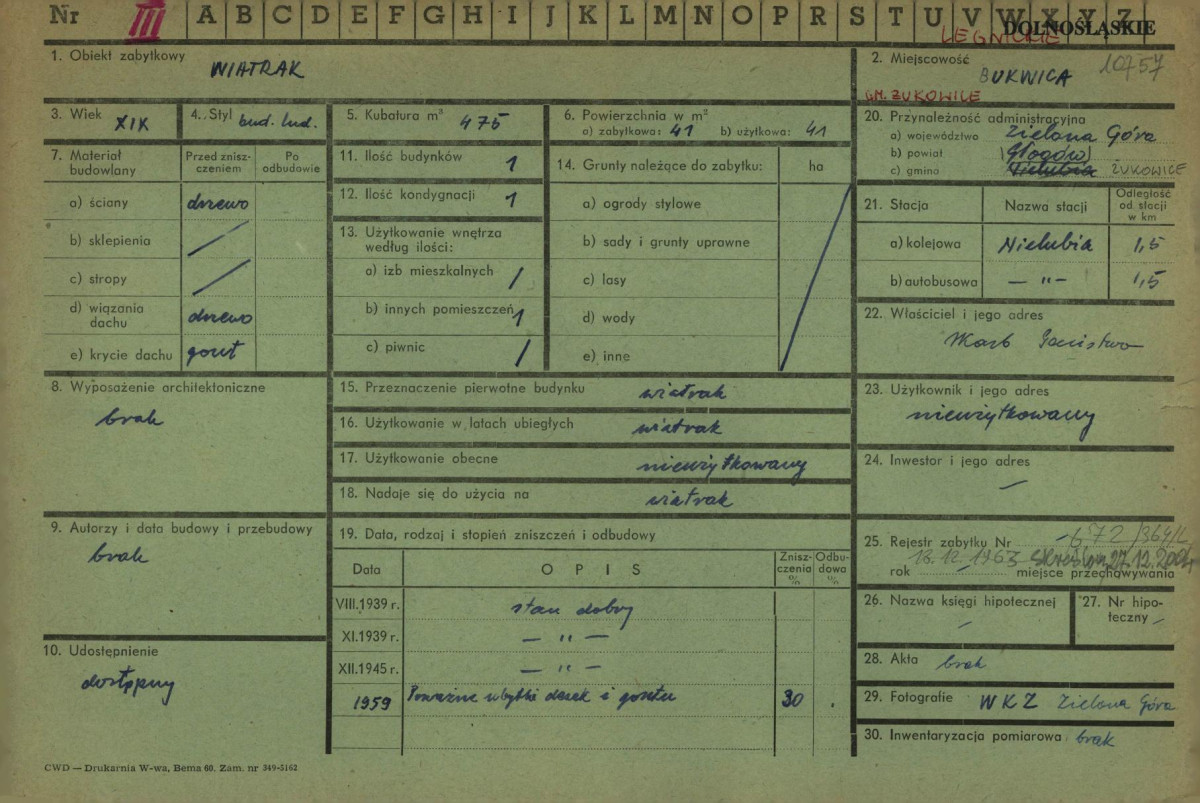 Nr III A B C D E F G H I J K L M N O P R S T U V W X Y Z
DOLNOŚLĄSKIE
LEGNICKIE
1. Obiekt zabytkowy
WIATRAK
2. Miejscowość
BUKWICA 10757
GM. ŻUKOWICE
3. Wiek XIX
4. Styl bud. lud.
5. Kubatura m³ 475
6. Powierzchnia w m²
a) zabytkowa: 41 b) użytkowa: 41
7. Materiał budowlany
Przed zniszczeniem
Po odbudowie
a) ściany drzewo
b) sklepienia
c) stropy
d) wiązania dachu drzewo
e) krycie dachu gont
8. Wyposażenie architektoniczne
brak
9. Autorzy i data budowy i przebudowy
brak
10. Udostępnienie
dostępny
11. Ilość budynków 1
12. Ilość kondygnacji 1
13. Użytkowanie wnętrza
według ilości:
a) izb mieszkalnych /
b) innych pomieszczeń 1
c) piwnic /
14. Grunty należące do zabytku: ha
a) ogrody stylowe
b) sady i grunty uprawne
c) lasy
d) wody
e) inne
15. Przeznaczenie pierwotne budynku wiatrak
16. Użytkowanie w latach ubiegłych wiatrak
17. Użytkowanie obecne nieużytkowany
18. Nadaje się do użycia na wiatrak
19. Data, rodzaj i stopień zniszczeń i odbudowy
Data OPIS Zniszczenia % Odbudowa %
VIII.1939 r. stan dobry
XI.1939 r. — " —
XII.1945 r. — " —
1959 Poważne ubytki desek i gontu 30
20. Przynależność administracyjna
a) województwo Zielona Góra
b) powiat Głogów
c) gmina Nielubia ŻUKOWICE
21. Stacja Nazwa stacji Odległość od stacji w km
a) kolejowa Nielubia 1,5
b) autobusowa — " — 1,5
22. Właściciel i jego adres
Skarb Państwa
23. Użytkownik i jego adres
nieużytkowany
24. Inwestor i jego adres
—
25. Rejestr zabytku Nr 672/364/L
rok 13.12.1963 skreślony 27.12.2004
miejsce przechowywania
26. Nazwa księgi hipotecznej
—
27. Nr hipoteczny —
28. Akta brak
29. Fotografie WKZ Zielona Góra
30. Inwentaryzacja pomiarowa brak
CWD — Drukarnia W-wa, Bema 60. Zam. nr 349-5162